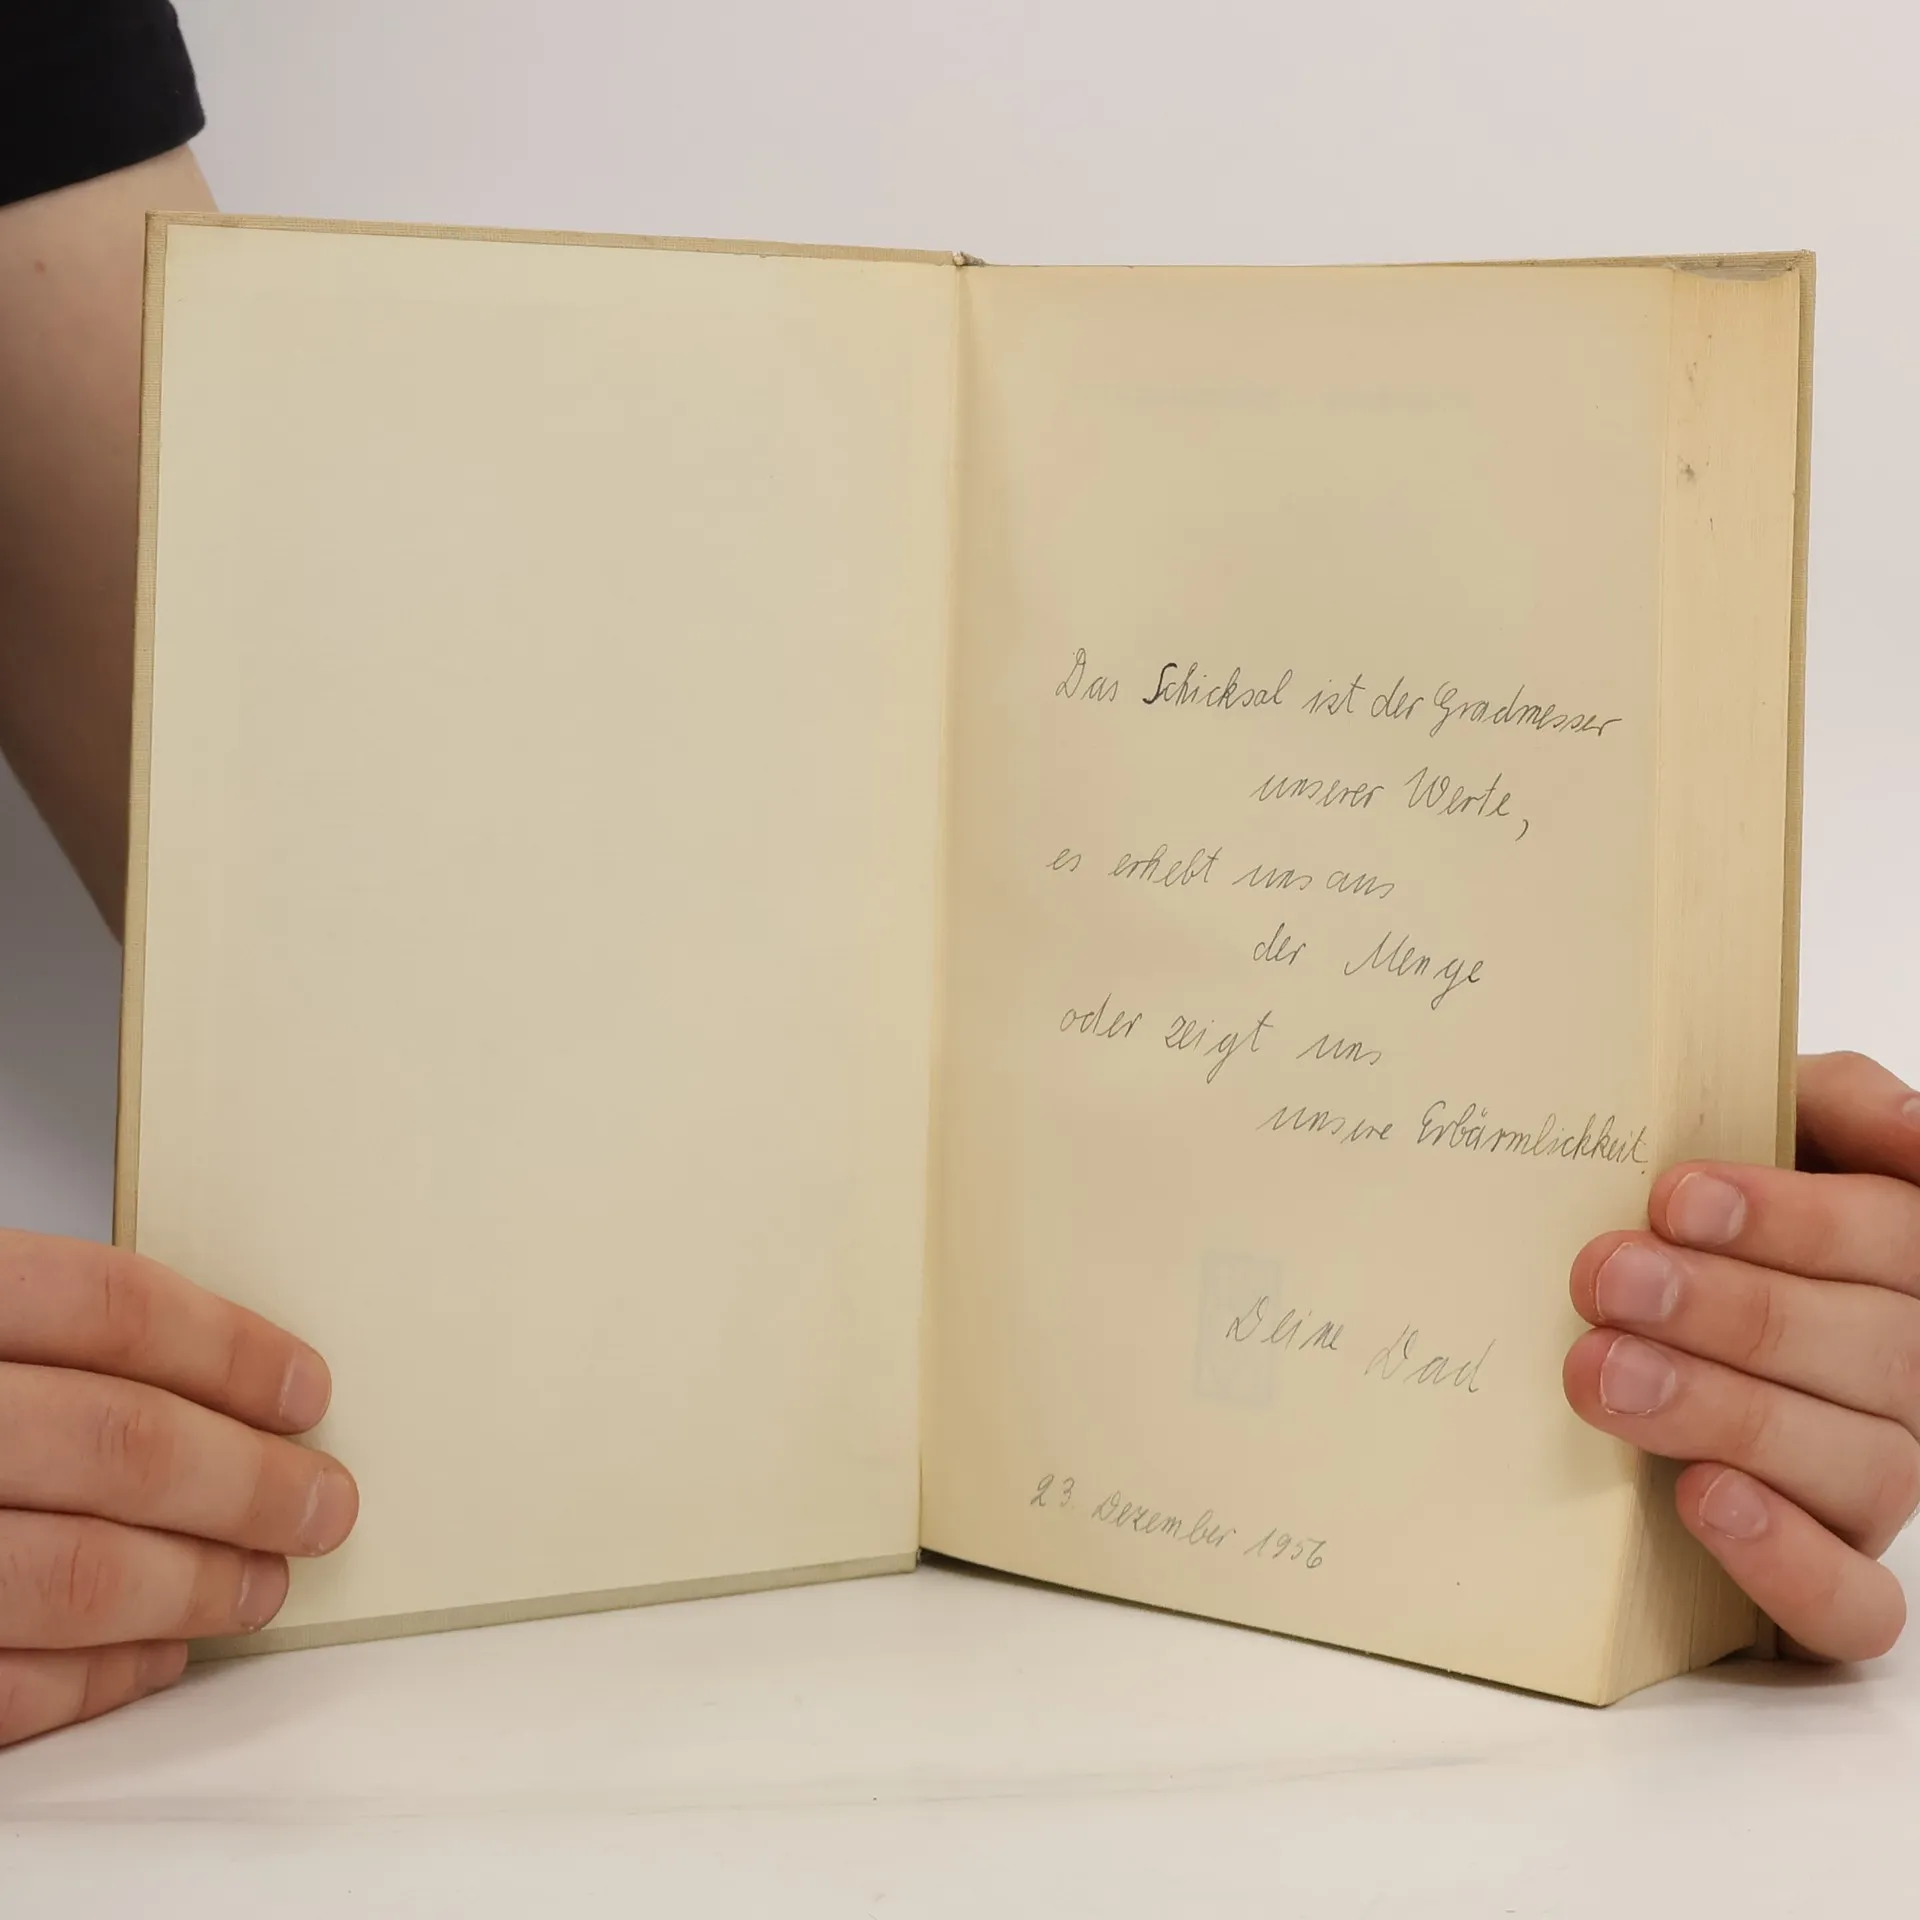 Das Schicksal ist der Gradmesser
unserer Werte,
es erhebt uns aus
der Menge
oder zeigt uns
unsere Erbärmlichkeit.
Deine Dad
23. Dezember 1956